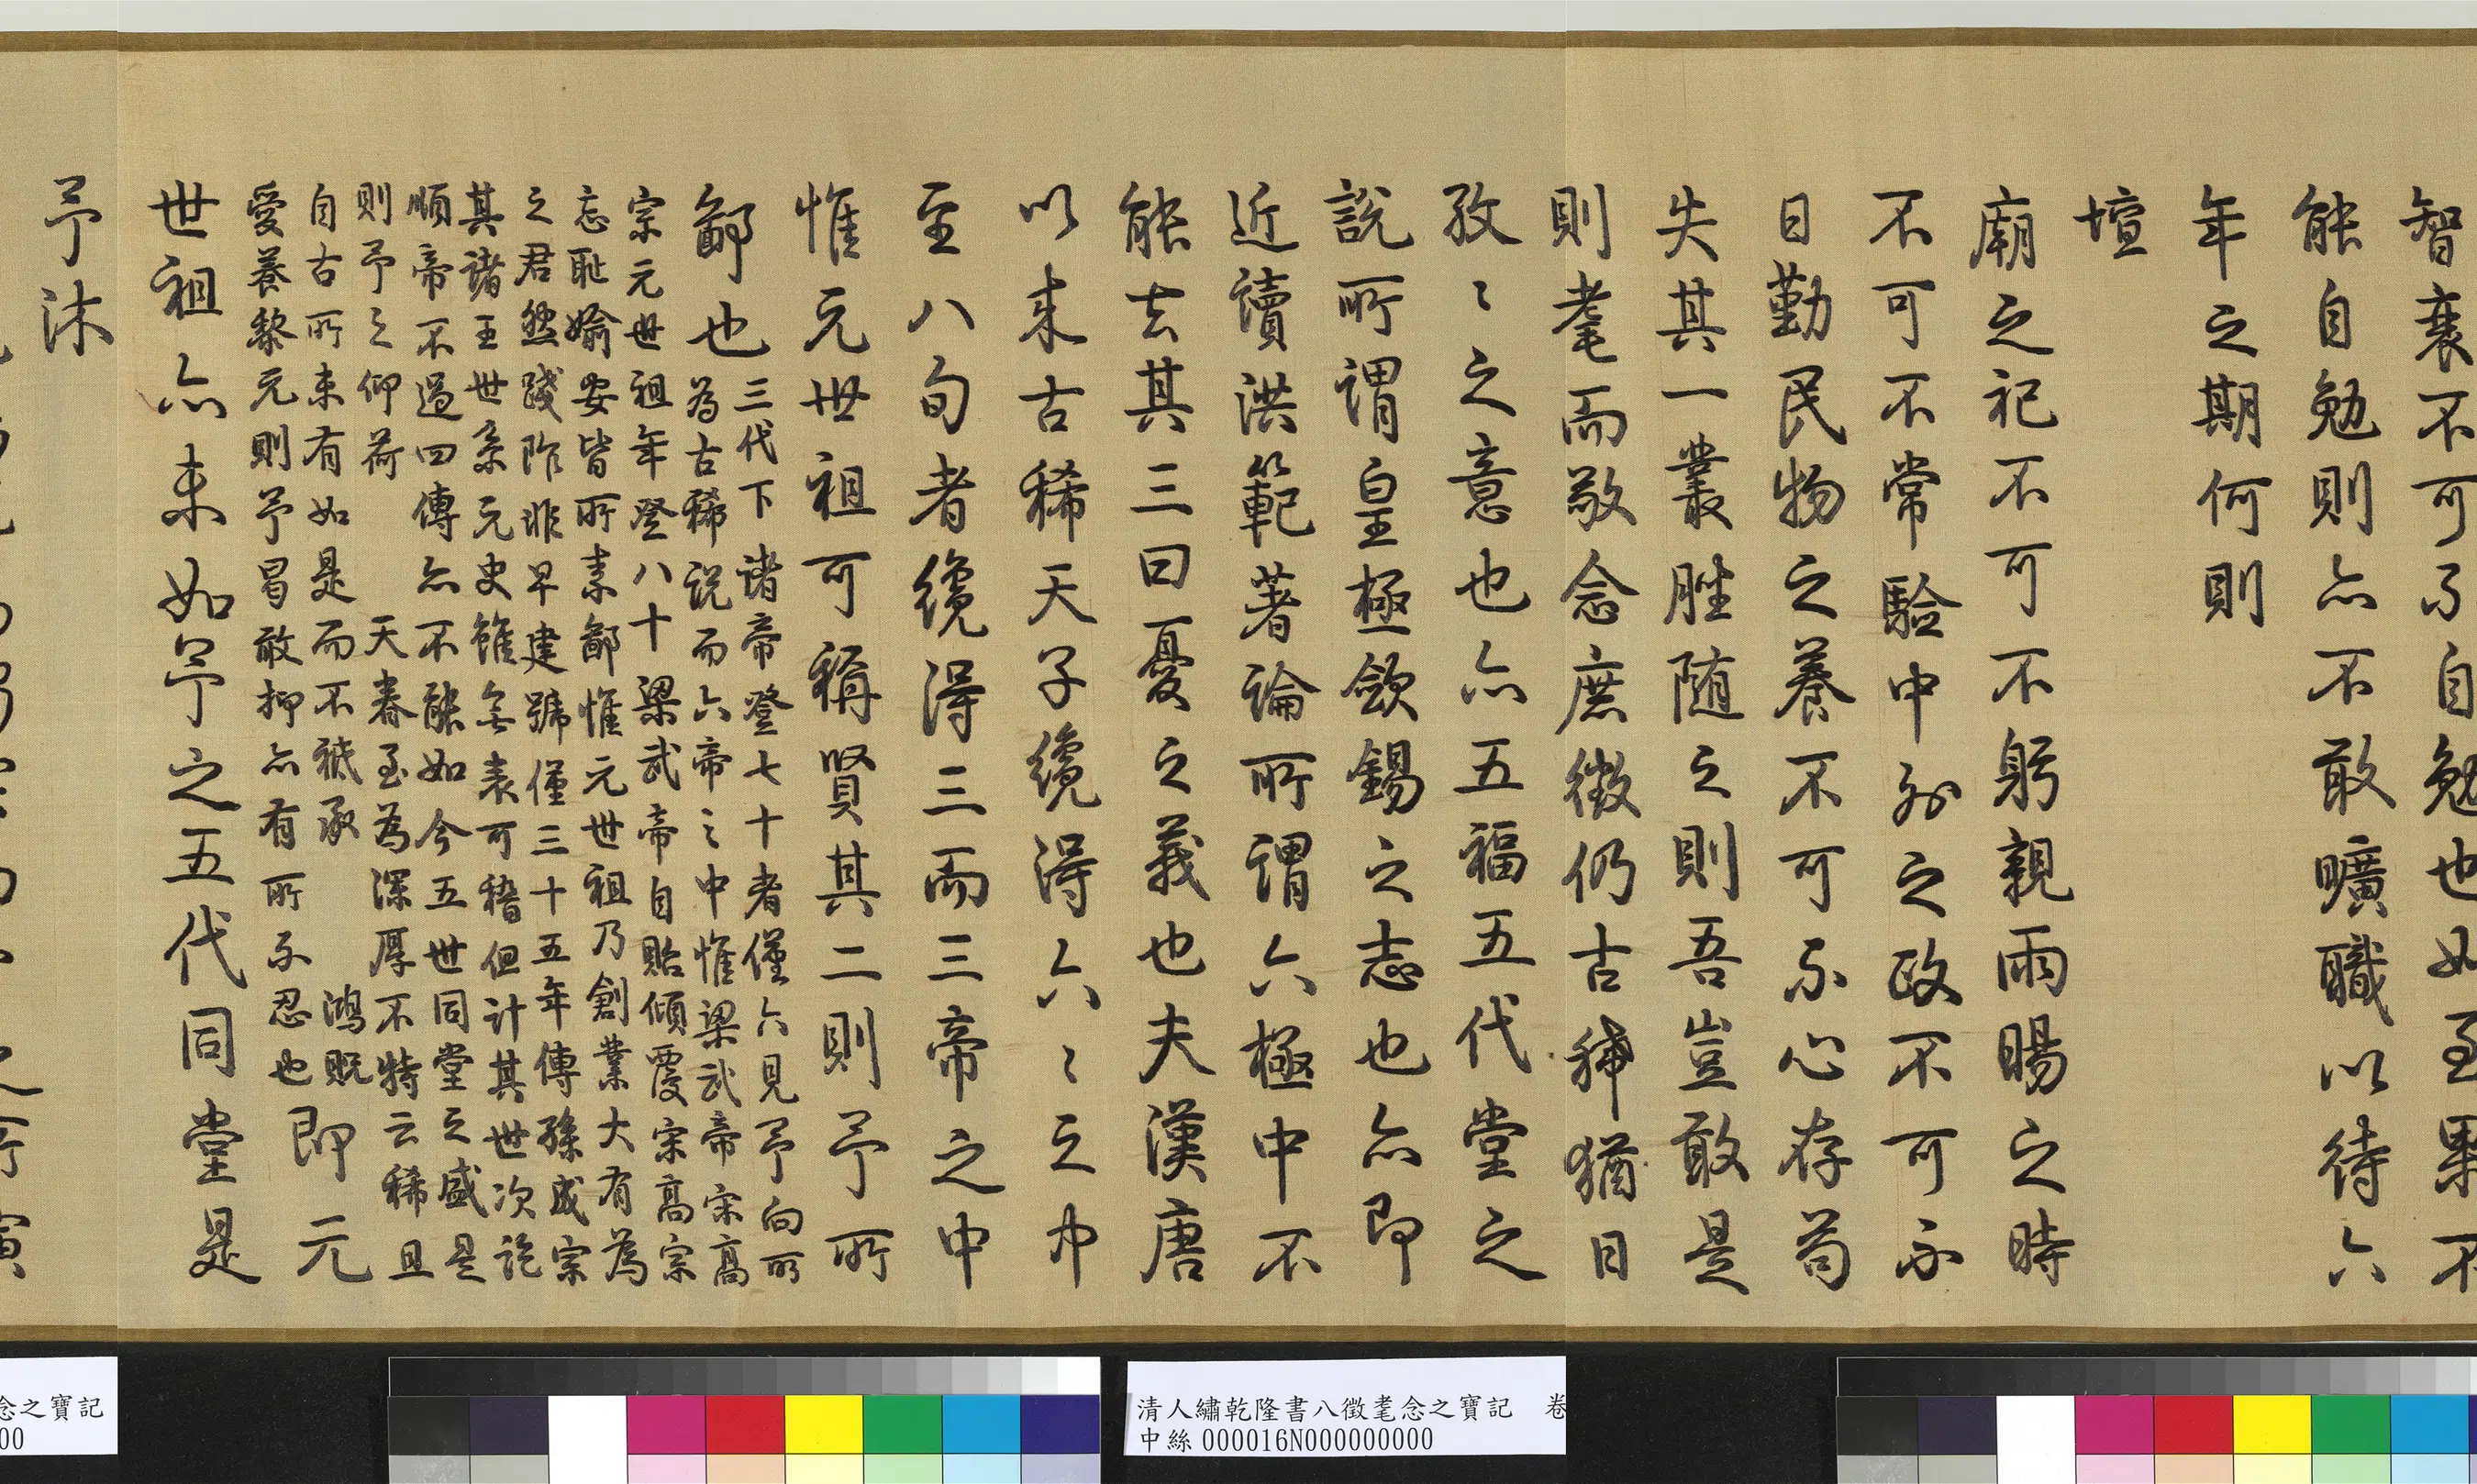 智衰不可不自勉也如至果不
能自勉則亦不敢曠職以待六
年之期何則
壇
廟之祀不可不躬親雨暘之時
不可不常驗中外之政不可不
日勤民物之養不可不心存苟
失其一叢脞随之則吾豈敢是
則耄而敬念庶徵仍古稀猶日
孜〻之意也亦五福五代堂之
說所謂皇極斂錫之志也亦即
近讀洪範著論所謂六極中不
能去其三曰憂之義也夫漢唐
以来古稀天子纔得六〻之中
至八旬者纔得三而三帝之中
惟元世祖可稱賢其二則予所
鄙也
三代下諸帝登七十者僅六見予向所
為古稀說而六帝之中惟梁武帝宋高
宗元世祖年登八十梁武帝自貽傾覆宋高宗
忘恥媮安皆所素鄙惟元世祖乃創業大有為
之君然踐阼非早建號僅三十五年傳孫成宗
其諸王世系元史雖無表可稽但计其世次訖
順帝不過四傳亦不能如今五世同堂之盛是
則予之仰荷 天眷至為深厚不特云稀且
自古所未有如是而不祗承 鴻貺
愛養黎元則予曷敢抑亦有所不忍也
即元
世祖亦未如予之五代同堂是
予沐
清人繡乾隆書八徵耄念之寶記 卷
中絲000016N000000000
念之寶記
00